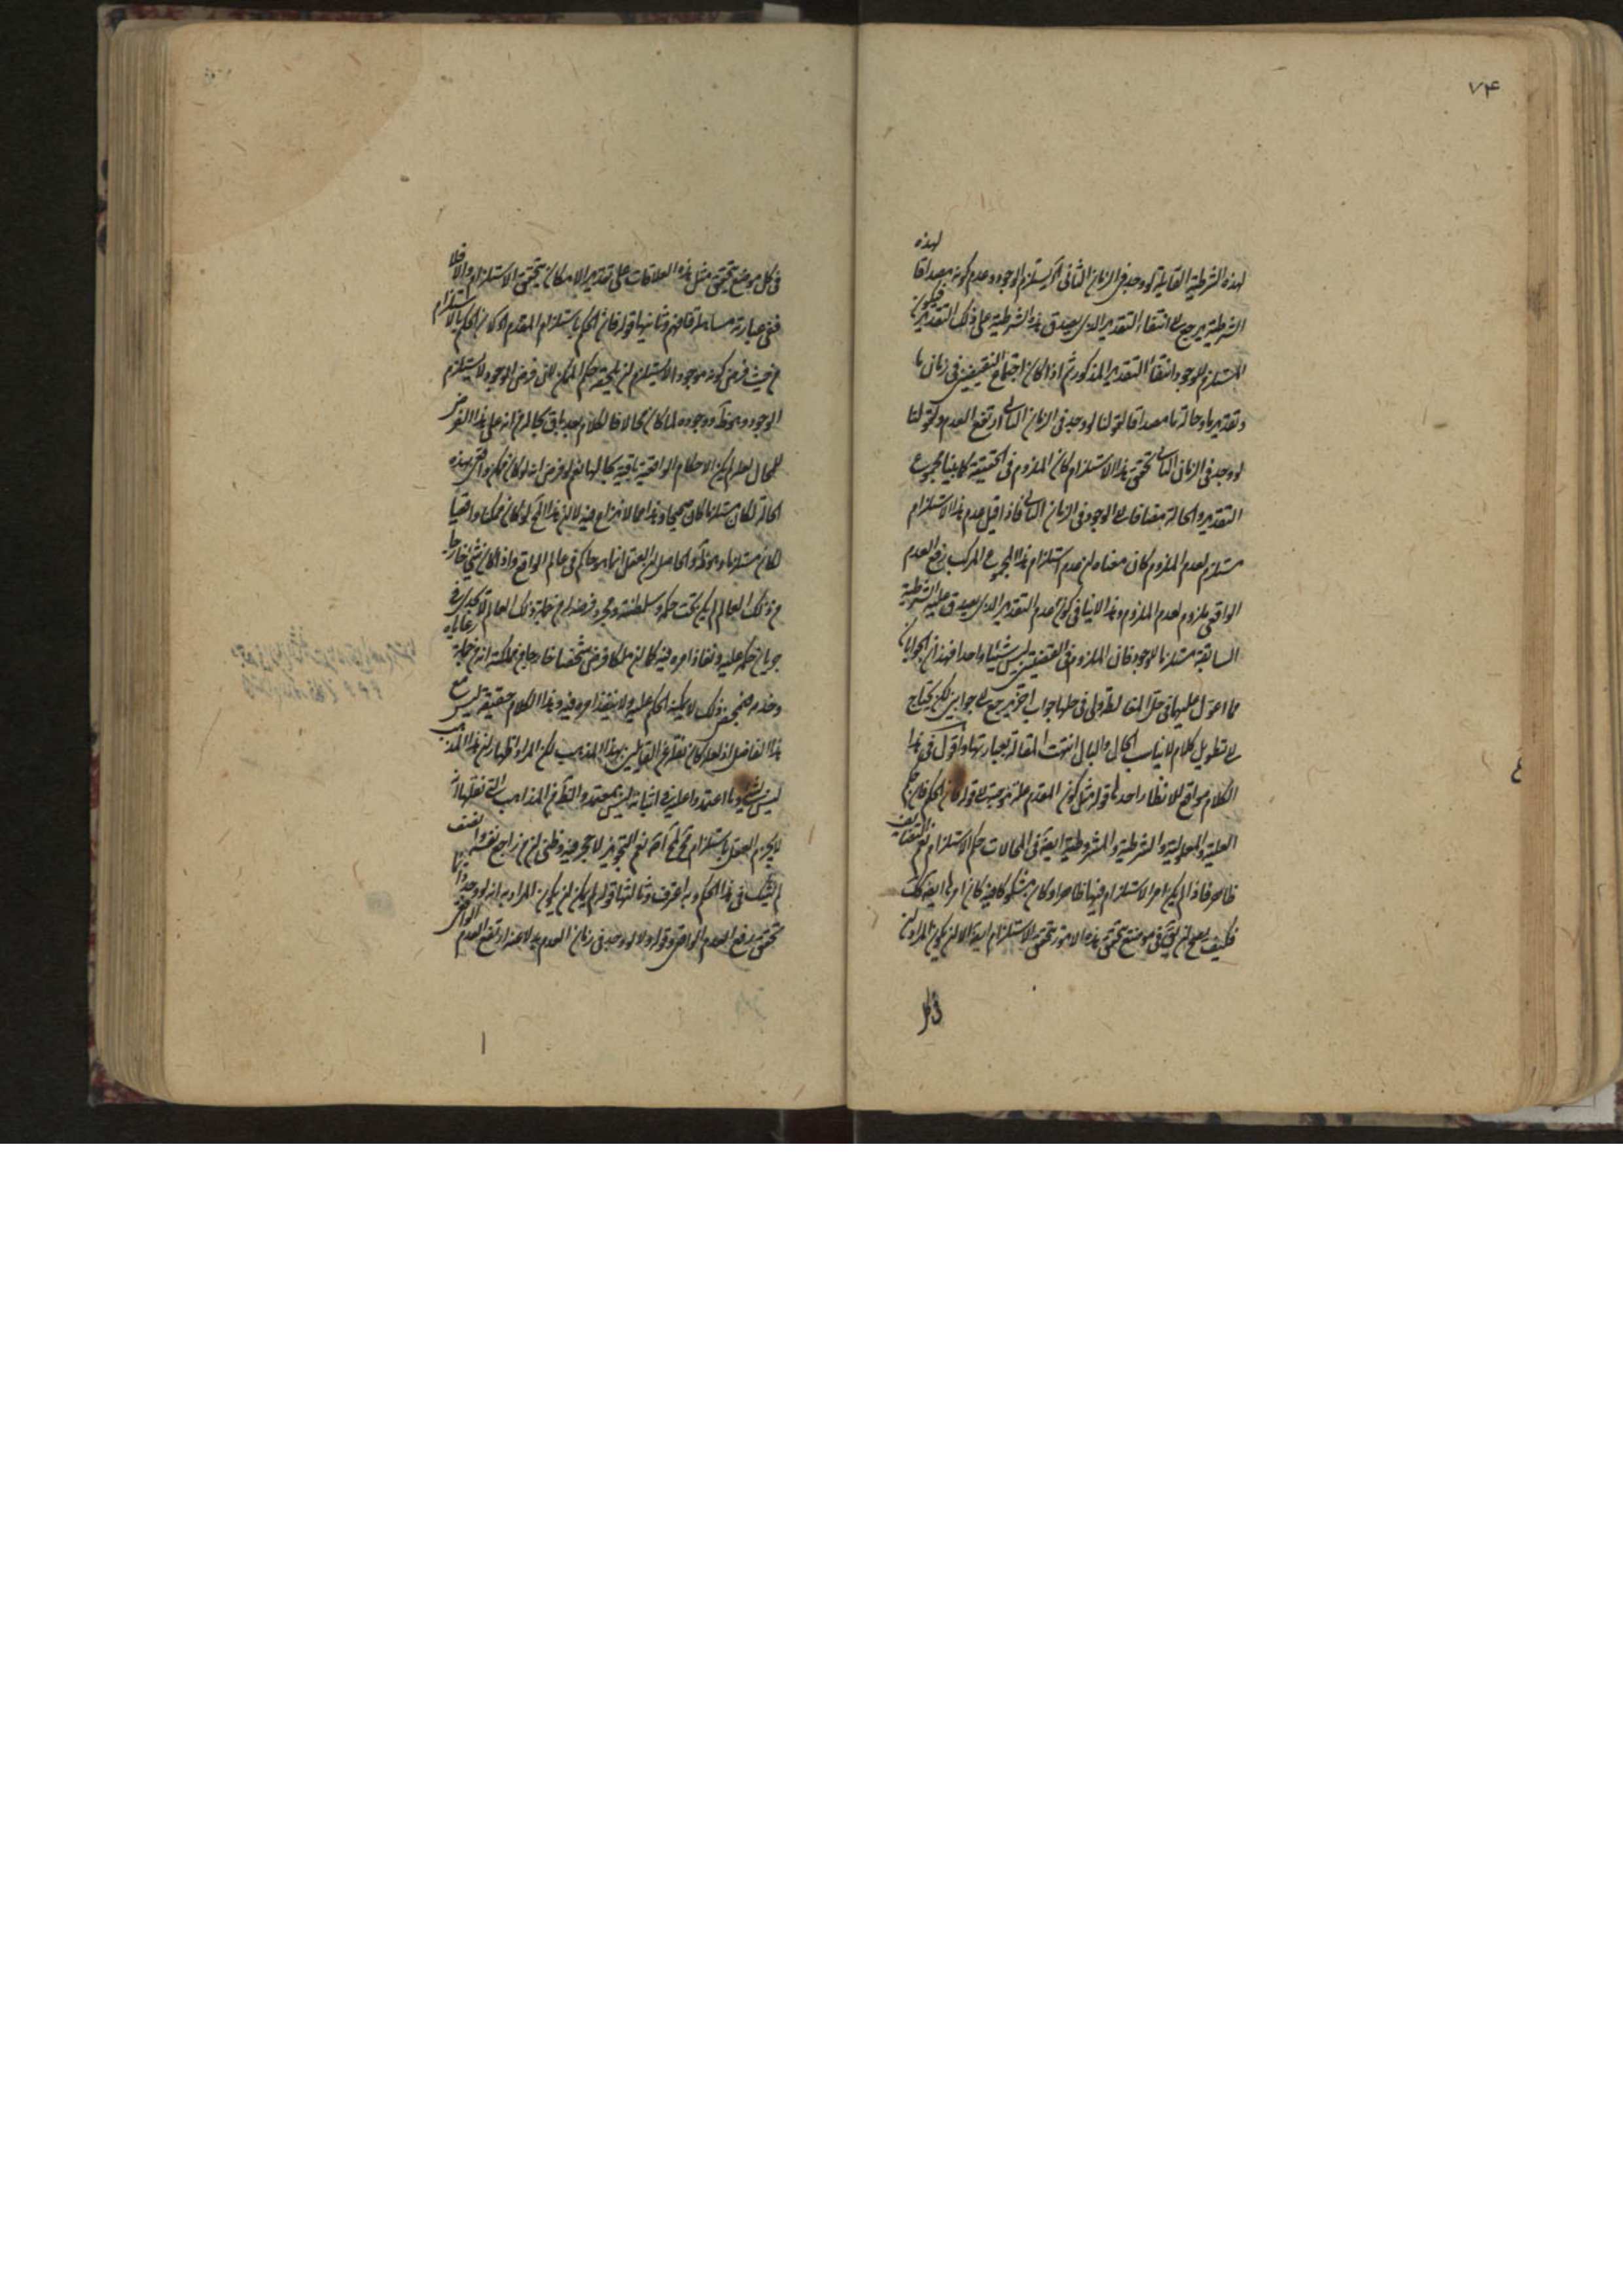 ٧۴
لهذه
لهذه الشرطية القايلة لو وجد في الزمان الثاني لم يستلزم الوجود وعدم كونه مصداقا
الشرطية يرجع الى انتفاء التقدير الذي يصدق هذه الشرطية على ذلك التقدير فيكون
المستلزم للوجود انتفاء التقدير المذكور ثم اذا كان اجتماع النقيضين في زمان ما
وتقدير ما وحالة ما مصداقا لقولنا لو وجد في الزمان الثاني ارتفع العدم وكقولنا
لو وجد في الزمان الثاني تحقق هذا الاستلزام كان الملزوم في الحقيقة كما بينا مجموع
التقدير والحالة مضافا الى الوجود في الزمان الثاني فاذا قيل عدم هذا الاستلزام
مستلزم لعدم الملزوم كان معناه ان عدم استلزام هذا المجموع المركب رفع العدم
الواقعي ملزوم لعدم الملزوم وهذا لا ينافي كون عدم التقدير الذي يصدق عليه الشرطية
السابقة مستلزما للوجود فان الملزوم في الحقيقتين ليس شيئا واحدا فهذان الجوابان
مما اعول عليهما في حل المغالطة ولي في حلها جواب اخر يرجع الى جوابين لكن يحتاج
الى تطويل كلام لا يناسب الحال والبال انتهت المقالة بعبارتها واقول في هذا
الكلام مواقع للانظار احدها قوله مثل كون المقدم علة موجبة الى قوله فان الحكم فان حكم
العلية والمعلولية والشرطية والمشروطية ايضا في المحالات حكم الاستلزام نعم التضايف
ظاهر فاذا لم يكن امر الاستلزام فيها ظاهرا وكان مشكوكا فيه كان امرها ايضا كك
فكيف يصح ان يقال في موضع تحقق هذه الامور تحقق الاستلزام ايضا الا ان يكون المراد ان
في كل
في كل موضع تحقق مثل هذه العلاقات على تقدير الامكان تحقق الاستلزام والا فلا
ففي عبارته مساهلة فافهم وثانيها قوله فان الحكم باستلزام المقدم اذ كان الحكم بالاستلزام
من حيث فرض كونه موجودا لا يستلزم ان يلحقه حكم الممكن لان فرض الوجود لا يستلزم
الوجود وهو ظ ووجوده لما كان محالا فالكلام بعد باق بحاله من انه على هذا الفرض
المحال لعله لم يكن الاحكام الواقعية باقية بحالها نعم لو فرض انه لو كان ممكنا واقعيا بهذه
الحالة لكان مستلزما كان صحيحا وهذا مما لا نزاع فيه لان هذا المح لو كان ممكنا واقعيا
لكان مستلزما وهو ظ والحاصل ان العقل انما هو حاكم في عالم الواقع واذا كان شيء خارجا
من ذلك العالم لم يكن تحت حكمه وسلطنته ومجرد فرضه انه من جملة ذلك العالم لا يجدي في
جريان حكمه عليه ونفاذ امره فيه كما ان ملكا فرض شخصا خارجا من مملكته انه من جملة رعاياه
وخدمه فبمحض ذلك لا يمكنه الحكم عليه ولا ينفذ امره فيه وهذا الكلام حقيقة ليس مع
هذا الفاضل اذ لعله كان نقلا عن القايلين بهذا المذهب لكن المراد اظهار ان هذا المذهب
ليس بشيء وما اعتمدوا عليه في اثباته ليس بمعتمد والظ من المذاهب التي نقلها انه
لا يجزم العقل باستلزام مح لمح اخر نعم التجويز لا حجر فيه وظني ان من راجع نفسه وانصف
لم يشك في هذا الحكم وبه اعترف وثالثها قوله لم يكن ان يكون المراد به انه لو وجد
تحقق رفع العدم الواقعي وقوله ولا لو وجد في زمان العدم بدلا عنه ارتفع العدم الواقعي